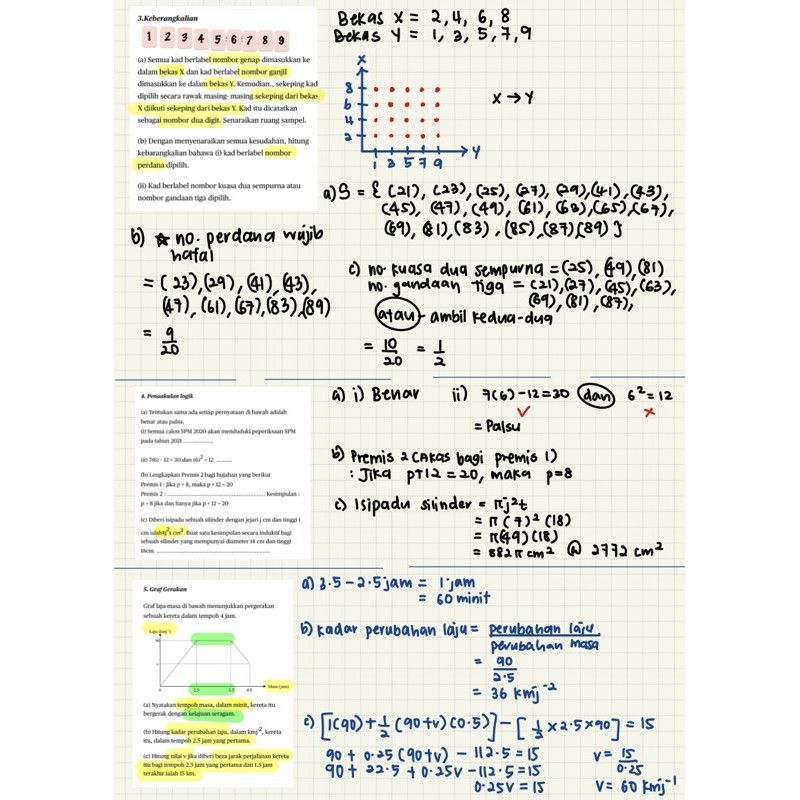 3.Keberangkalian
1 2 3 4 5 6 7 8 9
(a) Semua kad berlabel nombor genap dimasukkan ke
dalam bekas X dan kad berlabel nombor ganjil
dimasukkan ke dalam bekas Y. Kemudian., sekeping kad
dipilih secara rawak masing-masing sekeping dari bekas
X diikuti sekeping dari bekas Y. Kad itu dicatatkan
sebagai nombor dua digit. Senaraikan ruang sampel.
(b) Dengan menyenaraikan semua kesudahan, hitung
kebarangkalian bahawa (i) kad berlabel nombor
perdana dipilih.
(ii) Kad berlabel nombor kuasa dua sempurna atau
nombor gandaan tiga dipilih.
Bekas X = 2,4, 6, 8
Bekas Y = 1, 3, 5, 7, 9
X
8
6
4
2
1 3 5 7 9
Y
X → Y
a) S = { (21), (23), (25), (27), (29), (41), (43),
(45), (47), (49), (61), (63), (65), (67),
(69), (81), (83), (85), (87), (89) }
b) ☆ no. perdana wajib
hafal
= (23), (29), (41), (43),
(47), (61), (67), (83), (89)
= 9/20
c) no. kuasa dua sempurna = (25), (49), (81)
no. gandaan tiga = (21), (27), (45), (63),
(69), (81), (87),
atau - ambil kedua-dua
= 10/20 = 1/2
4. Penaakulan logik
(a) Tentukan sama ada setiap pernyataan di bawah adalah
benar atau palsu.
(i) Semua calon SPM 2020 akan menduduki peperiksaan SPM
pada tahun 2021 ................
(ii) 7(6) - 12 = 30 dan (6)² = 12 ........
(b) Lengkapkan Premis 2 bagi hujahan yang berikut
Premis 1 : Jika p = 8, maka p + 12 = 20
Premis 2 : ................................ Kesimpulan :
p = 8 jika dan hanya jika p + 12 = 20
(c) Diberi isipadu sebuah silinder dengan jejari j cm dan tinggi t
cm ialah πj²t cm³. Buat satu kesimpulan secara induktif bagi
sebuah silinder yang mempunyai diameter 14 cm dan tinggi
18cm. ................................
a) i) Benar
ii) 7(6) - 12 = 30 dan 6² = 12
✓ ×
= Palsu
b) Premis 2 (Akas bagi premis 1)
: Jika p+12 = 20, maka p = 8
c) Isipadu silinder = πj²t
= π (7)² (18)
= π(49) (18)
= 882 π cm² @ 2772 cm²
5. Graf Gerakan
Graf laju-masa di bawah menunjukkan pergerakan
sebuah kereta dalam tempoh 4 jam.
Laju (kmj⁻¹)
90
v
0 2.5 3.5 4.0
Masa (jam)
(a) Nyatakan tempoh masa, dalam minit, kereta itu
bergerak dengan kelajuan seragam.
(b) Hitung kadar perubahan laju, dalam kmj⁻², kereta
itu, dalam tempoh 2.5 jam yang pertama.
(c) Hitung nilai v jika diberi beza jarak perjalanan kereta
itu bagi tempoh 2.5 jam yang pertama dan 1.5 jam
terakhir ialah 15 km.
a) 3.5 - 2.5 jam = 1 jam
= 60 minit
b) Kadar perubahan laju = perubahan laju / perubahan masa
= 90/2.5
= 36 kmj⁻²
c) [1(90) + 1/2 (90+v) (0.5)] - [1/2 × 2.5 × 90] = 15
90 + 0.25 (90+v) - 112.5 = 15
90 + 22.5 + 0.25v - 112.5 = 15
0.25v = 15
v = 15/0.25
v = 60 kmj⁻¹